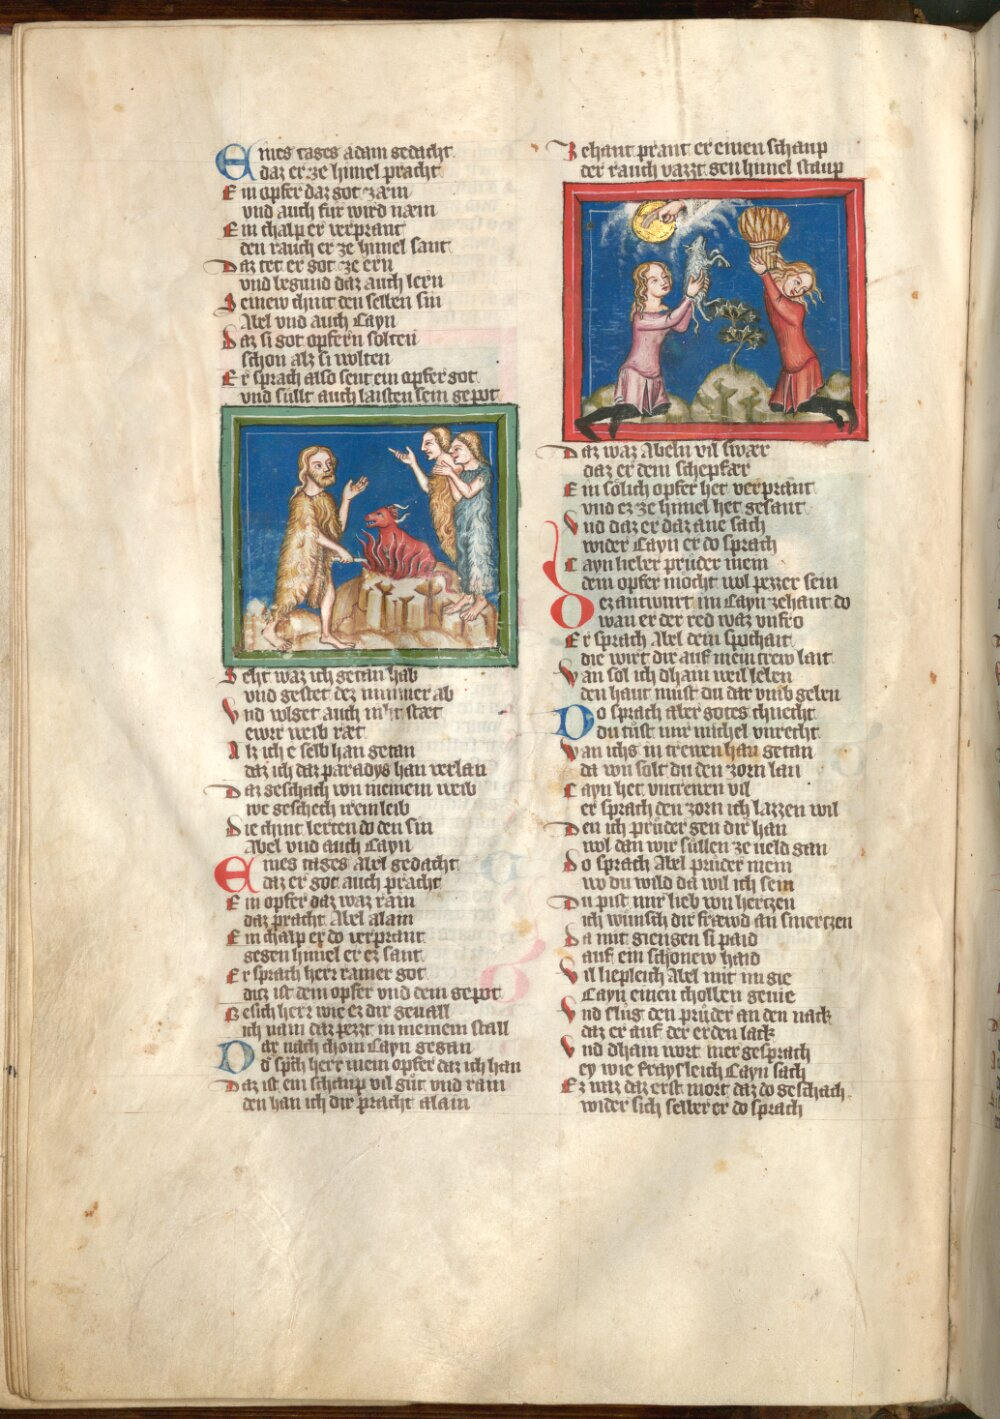 Eines tages adam gedacht
daz er ze himel pracht
Ein opfer daz got zæm
vnd auch für wird næm
Ein chalp er verprant
den rauch er ze himel sant
Daz tet er got ze ern
vnd begund daz auch lern
Seinew chint den selben sin
Abel vnd auch Cayn
Daz si got opfern solten
schon alz si wolten
Er sprach also sent ein opfer got
vnd süllt auch laisten sein gepot
Seht waz ich getan hab
vnd gestet dez nimmer ab
Vnd volget auch nit stæt
ewrr weib ræt
Alz ich e selb han getan
daz ich daz paradys han verlan
Daz geschach von meinem weib
we geschech irem leib
Die chint lerten do den sin
Abel vnd auch Cayn
Eines tages Abel gedacht
daz er got auch pracht
Ein opfer daz waz rain
daz pracht Abel alain
Ein chalp er do verprant
gegen himel er ez sant
Er sprach herr rainer got
ditz ist dein opfer vnd dein gepot
Besich herr wie ez dir geuall
ich nam daz pezzt in meinem stall
Dar nach chom Cayn gegan
Er sprach herr mein opfer daz ich han
Daz ist ein schaup vil gůt vnd rain
den han ich dir pracht alain
Zehant prant er einen schaup
der rauch vazzt gen himel staup
Daz waz Abeln vil swær
daz er dem schepfær
Ein sölich opfer het verprant
vnd ez ze himel het gesant
Vnd daz er daz ane sach
wider Cayn er do sprach
Cayn lieber prüder mein
dein opfer möcht wol pezzer sein
Dez antwurt im Cayn zehant do
wan er der red waz vnfro
Er sprach Abel dein spöchait
die wirt dir auf mein trew lait
Wan sol ich dhain weil leben
den haut müst du dar vmb geben
Do sprach aber gotes chnecht
du tůst mir michel vnrecht
Wan ichs in trewen han getan
da von solt du den zorn lan
Cayn het vntrewen vil
er sprach den zorn ich lazzen wil
Den ich prüder gen dir han
wol dan wir süllen ze veld gan
Do sprach Abel prüder mein
wo du wild da wil ich sein
Du pist mir lieb von hertzen
ich wünsch dir fræwd an smertzen
Da mit giengen si paid
auf ein schönew haid
Vil liepleich Abel mit im gie
Cayn einen chollen genie
Vnd slůg den prüder an den nack
daz er auf der erden lack
Vnd dhain wort mer gesprach
ey wie fraysleich Cayn sach
Ez waz daz erst mort daz do geschach
wider sich selber er do sprach